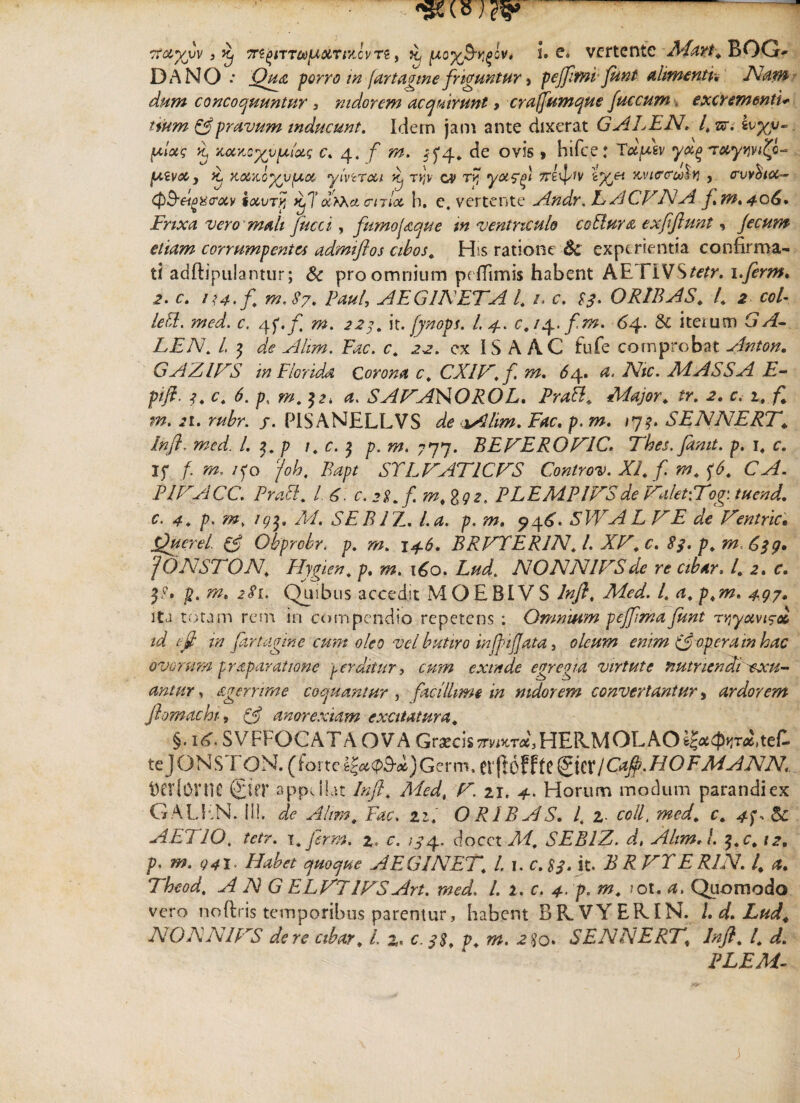 (8)
παχὺν, κ̣ πεϱιττωματικόντε, κ̣ μοχϑηϱόν. i. e. vertente Mart. BOG-
DANO: Quæ porro in sartagine friguntur, pessimi sunt alimenti. Nam
dum concoquuntur, nidorem acquirunt, crassumque succum, excrementi-
tium & pravum inducunt. Idem jam ante dixerat GALEN. l. π. εὐχυ-
μίας κ̣ κακοχυμίας c. 4. f m. 354. de ovis, hisce: Τὰ μὲν γὰϱ ταγηνιζό-
μενα, κ̣ κακόχυμα γίνεται κ̣ τὴν ἐν τῇ γαςϱὶ πέψιν ἔχει κνισσώδη, συνδια-
φϑείϱουσαν ἑαυτῇ κ̣ τ' ἄλλα σιτία h. e. vertente Andr. LACVNA f. m. 406.
Frixa vero mali succi, fumosaque in ventriculo coctura exsistunt, secum
etiam corrumpentes admistos cibos. His ratione & experientia confirma-
ti adstipulantur; & pro omnium pessimis habent AETIVS tetr. 1. serm.
2. c. 134. f. m. 87. Paul. AEGINETA l. 1. c. 83. ORIBAS. l. 2 col-
lect. med. c. 45. f. m. 223. it. synops. l. 4. c. 14. f. m. 64. & iterum GA-
LEN. l. 3 de Alim. Fac. c. 22. ex ISAAC fuse comprobat Anton.
GAZIVS in Florida Corona c. CXIV. f. m. 64. a. Nic. MASSA E-
pist. 3. c. 6. p. m. 32. a. SAVANOROL. Pract. Major. tr. 2. c. 1. f.
m. 21. rubr. 5. PISANELLVS de Alim. Fac. p. m. 173. SENNERT.
Inst. med. l. 3. p 1. c. 3 p. m. 777. BEVEROVIC. Thes. sanit. p. 1. c.
15 f. m. 150 Joh. Bapt SYLVATICVS Controv. XI. f. m. 56. CA-
PIVACC. Pract. l. 6. c. 28. f. m. 892. PLEMPIVS de Valet. Tog. tuend.
c. 4. p. m. 193. M. SEBIZ. l. a. p. m. 946. SWALVE de Ventric.
Querel. & Obprobr. p. m. 146. BRVYERIN. l. XV. c. 83. p. m. 639.
JONSTON. Hygien. p. m. 160. Lud. NONNIVS de re cibar. l. 2. c.
38. p. m. 281. Quibus accedit MOEBIVS Inst. Med. l. a. p. m. 497.
ita totam rem in compendio repetens: Omnium pessima sunt τηγανιςὰ
id est in sartagine cum oleo vel butiro inspissata, oleum enim & opera in hac
ovorum præparatione perditur, cum exinde egregia virtute nutriendi exu-
antur, ægerrime coquantur, facillime in nidorem convertantur, ardorem
stomachi, & anorexiam excitatura.
§. 16. SVFFOCATA OVA Græcis πνικτὰ, HERMOLAO ἐξαφητὰ, tes-
te JONSTON. (forte ἐξαφϑὰ) Germ. erstöffte Eier/ Casp. HOFMANN.
verlorne Eier appellat Inst. Med. V. 21. 4. Horum modum parandi ex
GALEN. III. de Alim. Fac. 22. ORIBAS. l. 2. coll. med. c. 45. &
AETIO. tetr. 1. serm. 2. c. 134. docet M. SEBIZ. d. Alim. l. 3. c. 12.
p. m. 941. Habet quoque AEGINET. l. 1. c. 83. it. BRVYERIN. l. a.
Theod. ANGELVTIVS Art. med. l. 2. c. 4. p. m. 101. a. Quomodo
vero nostris temporibus parentur, habent BRVYERIN. l. d. Lud.
NONNIVS de re cibar. l. 2. c. 38. p. m. 280. SENNERT. Inst. l. d.
PLEM-